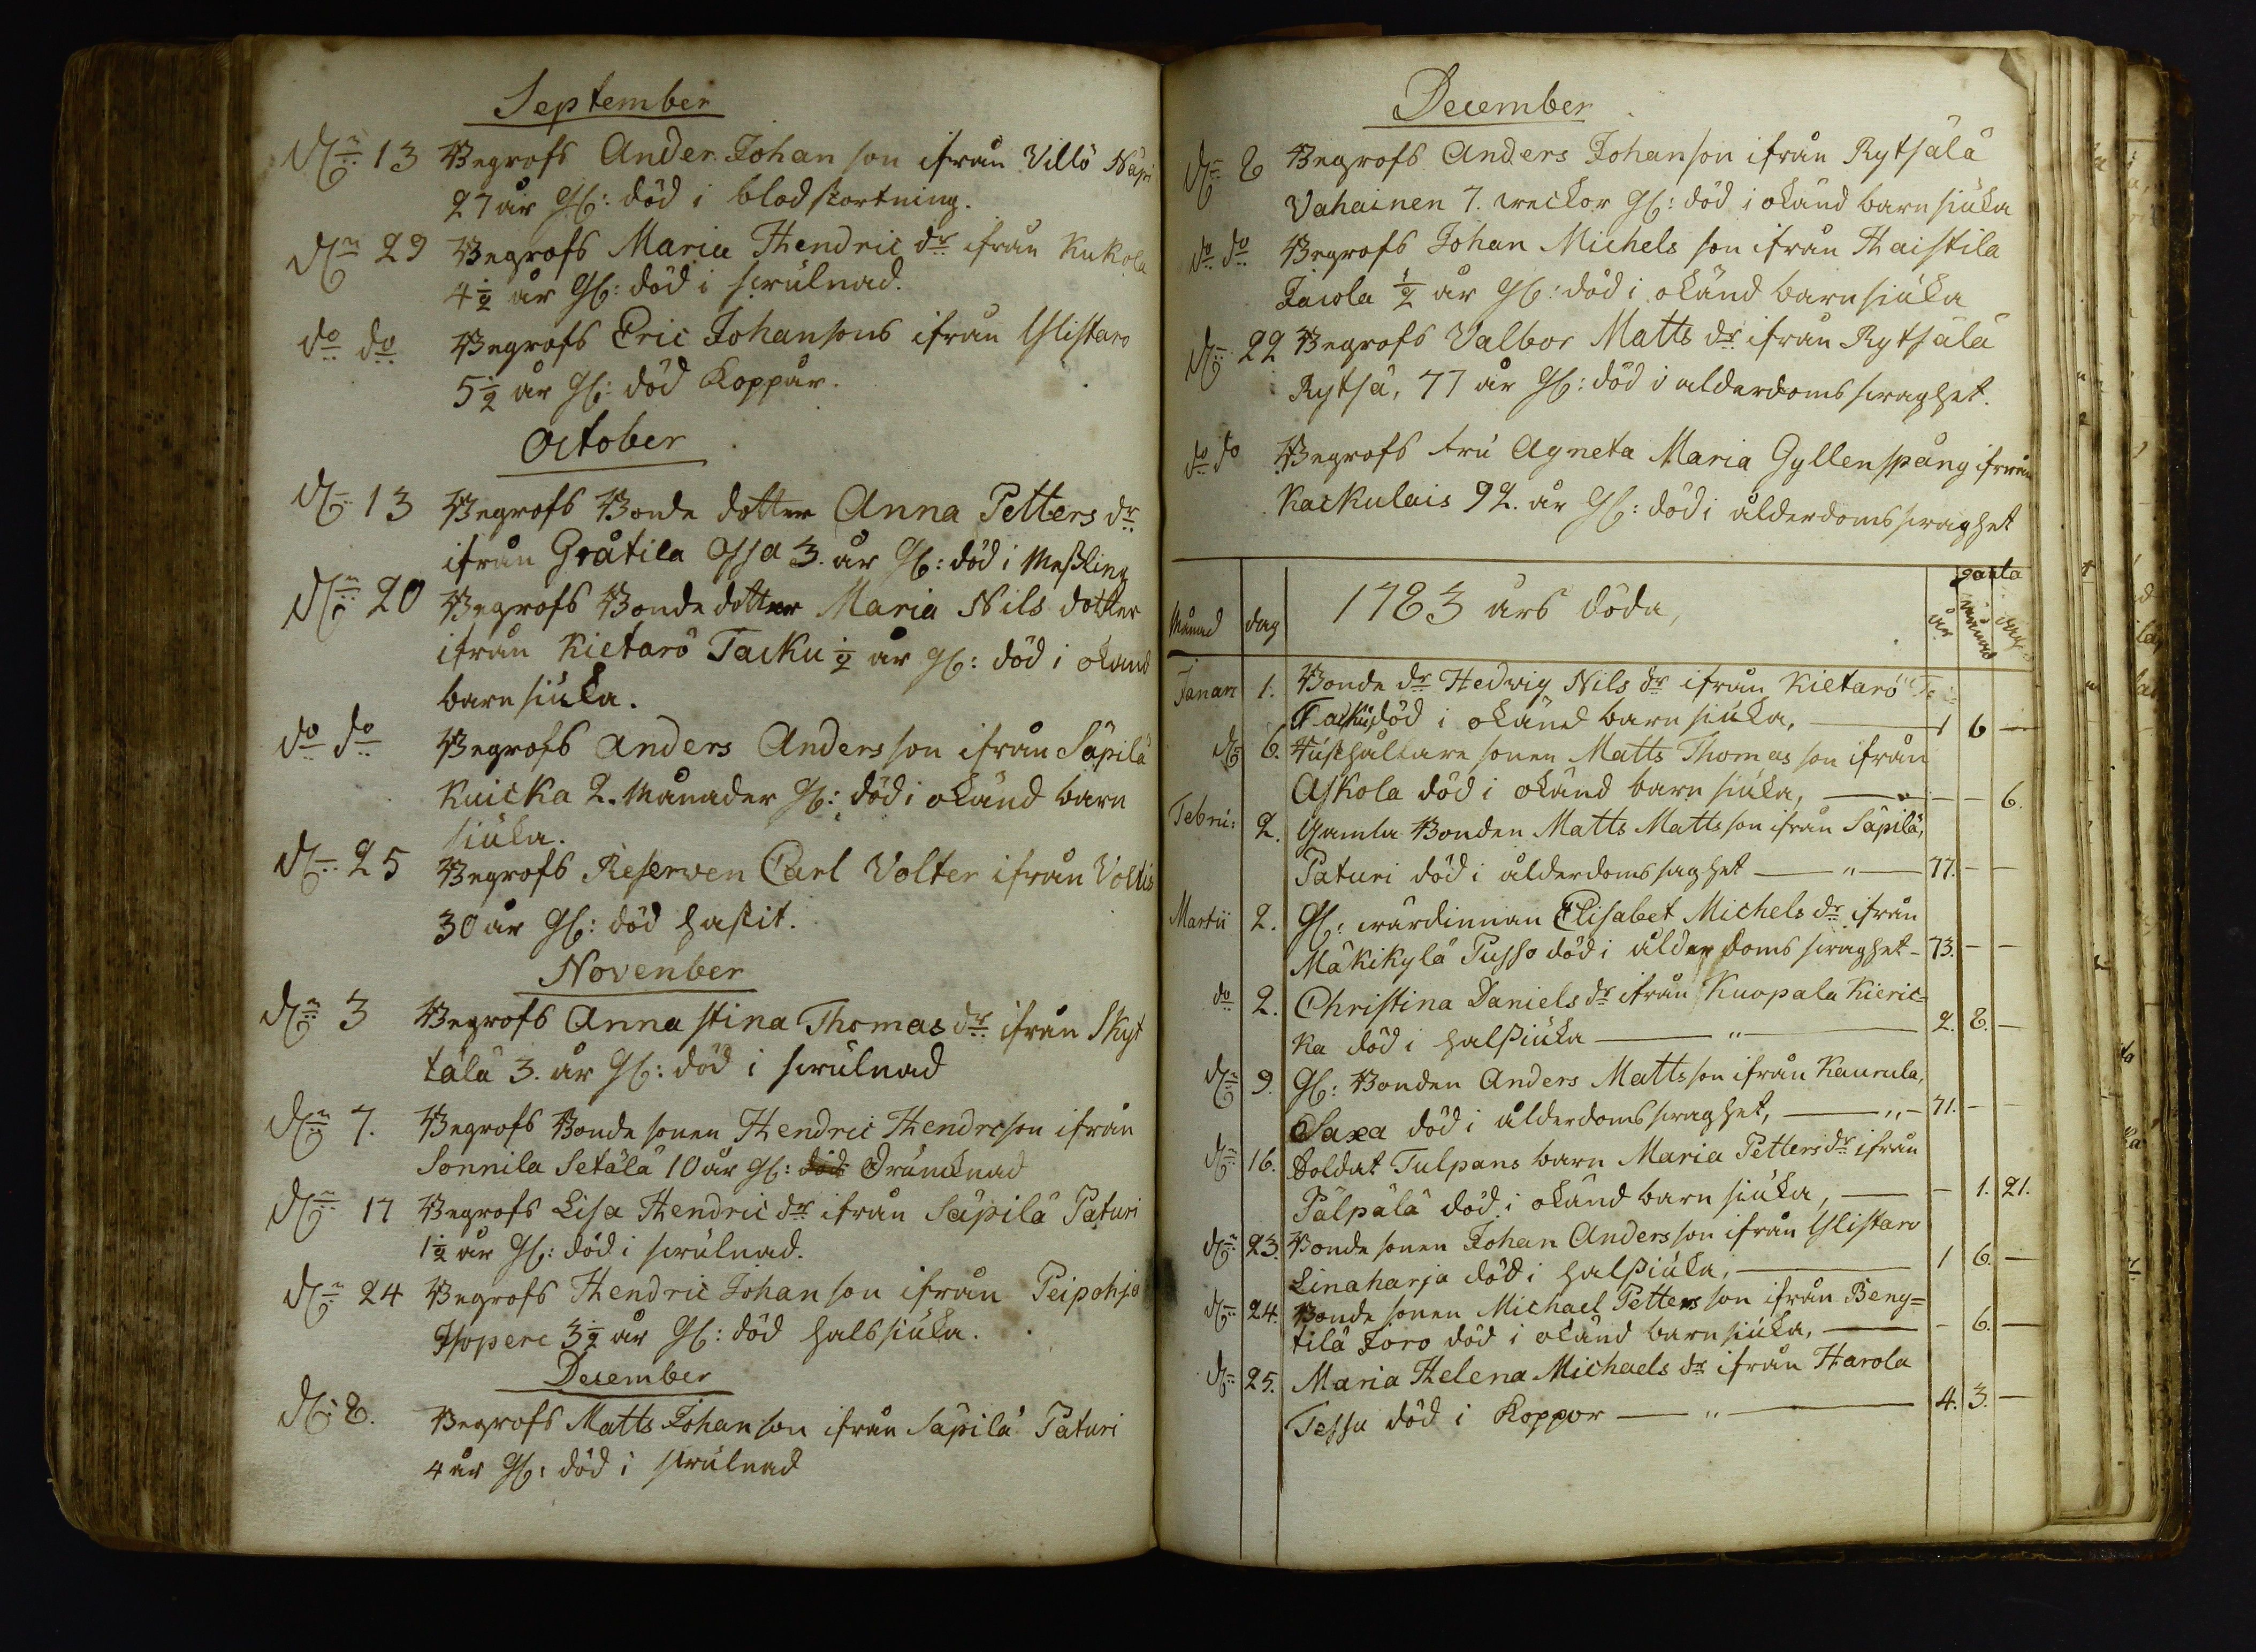 September
Dn 13 Begrofs Ander Johan son ifrån Villö Näpi
27 år Gl: död i blodstortning.
Dn 29 Begrofs Maria Hendric dr ifrån Kukola
4 1/2 år Gl: död i swulnad.
do do Begrofs Eric Johansons ifrån Ylistaro
5 1/2 år Gl: död Koppår.
October
D 13 Begrofs Bonde dotter Anna Petters dr
ifrån Gråtila Ossa 3. år Gl: död i Meßling
Dn 20 Begrofs Bonde dotter Maria Nils dotter
ifrån Kietarö Tacku 1/2 år Gl: död i okänd
barn siuka.
do do Begrofs Anders Anders son ifrån Säpilä
Kuicka 2. Månader Gl: död i okänd barn
siuka.
D 25 Begrofs Reserven Carl Volter ifrån Voltis
30 år Gl: död hastit.
November
Dn 3 Begrofs Anna Stina Thomas dr ifrån Skyt
tälä 3. år Gl: död i swulnad
Dn 7. Begrofs Bonde sonen Hendric Hendricson ifrån
Sonnila Setälä 10 år Gl: död Drunknad
Dn 17 Begrofs Lisa Hendric dr ifrån Säpilä Paturi
1 1/2 år Gl: död i swulnad.
Dn 24 Begrofs Hendric Johan son ifrån Peipohja
Isopere 3 1/2 år Gl: död halssiuka.
December
D 8. Begrofs Matts Johan son ifrån Säpilä Paturi
4 år Gl: död i swulnad
December
Dn 8 Begrofs Anders Johanson ifrån Rytsälä
Vahainen 7. weckor Gl: död i okänd barn siuka
do do Begrofs Johan Michels son ifrån Haistila
Jaiola 1/2 år Gl: död i okänd barn siuka
D 22 Begrofs Valbor Matts dr ifrån Rytsälä
Rytsä, 77 år Gl: död i alderdoms swaghet.
do do Begrofs Fru Agneta Maria Gyllenspång ifrån
Kackulais 92. år Gl: död i ålderdoms swaghet
Månad dag 1783 års döda, år månad dag
Januar 1. Bonde dr Hedwig Nils dr ifrån Kietarö
Tacku, död i okänd barn siuka, 1 6 —
Dn 6. Hushållare sonen Matts Thomas son ifrån
Askola död i okänd barn siuka, — — 6.
Febru: 2. Gamla Bonden Matts Matts son ifrån Säpilä,
Paturi död i ålderdoms saghet — " — 77. — —
Martii 2. Gl: wärdinnan Elisabet Michels dr ifrån
Mäkikylä Pusso död i ålder doms swaghet - 73. — —
do 2. Christina Daniels dr ifrån Kuopala Kieric=
ka död i halssiuka — " — 2. 8. —
Dn 9. Gl: Bonden Anders Matts son ifrån Kaurula,
Saxa död i ålderdoms swaghet, — " — 71. — —
Dn 16. Soldat Tulpans barn Maria Petters dr ifrån
Pälpälä död i okänd barn siuka, — — 1. 21.
Dn 23. Bonde sonen Johan Anders son ifrån Ylistaro
Linaharja död i halssiuka, — 1 6. —
D 24. Bonde sonen Michael Petters son ifrån Beng=
tilä Joro död i okänd barn siuka, — — 6. —
D 25. Maria Helena Michaels dr ifrån Harola
Tessu död i Koppor — " — 4. 3. —